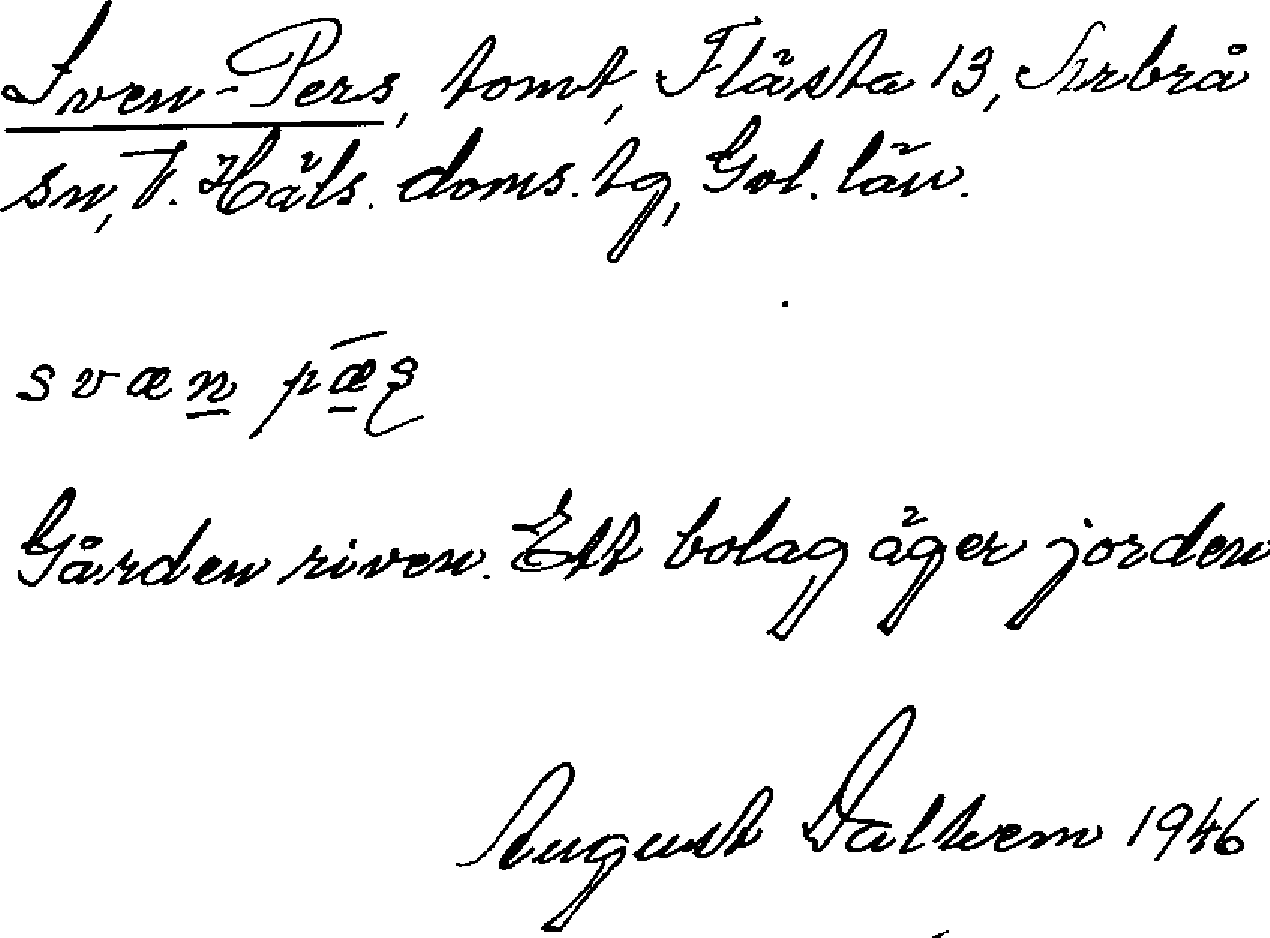 Sven-Pers, tomt, Flästa 13, Arbrå
sn, V. Häls. doms. tg, Gvl. län.
svæn pǣʂ
Gården riven. Ett bolag äger jorden
August Daltrem 1946